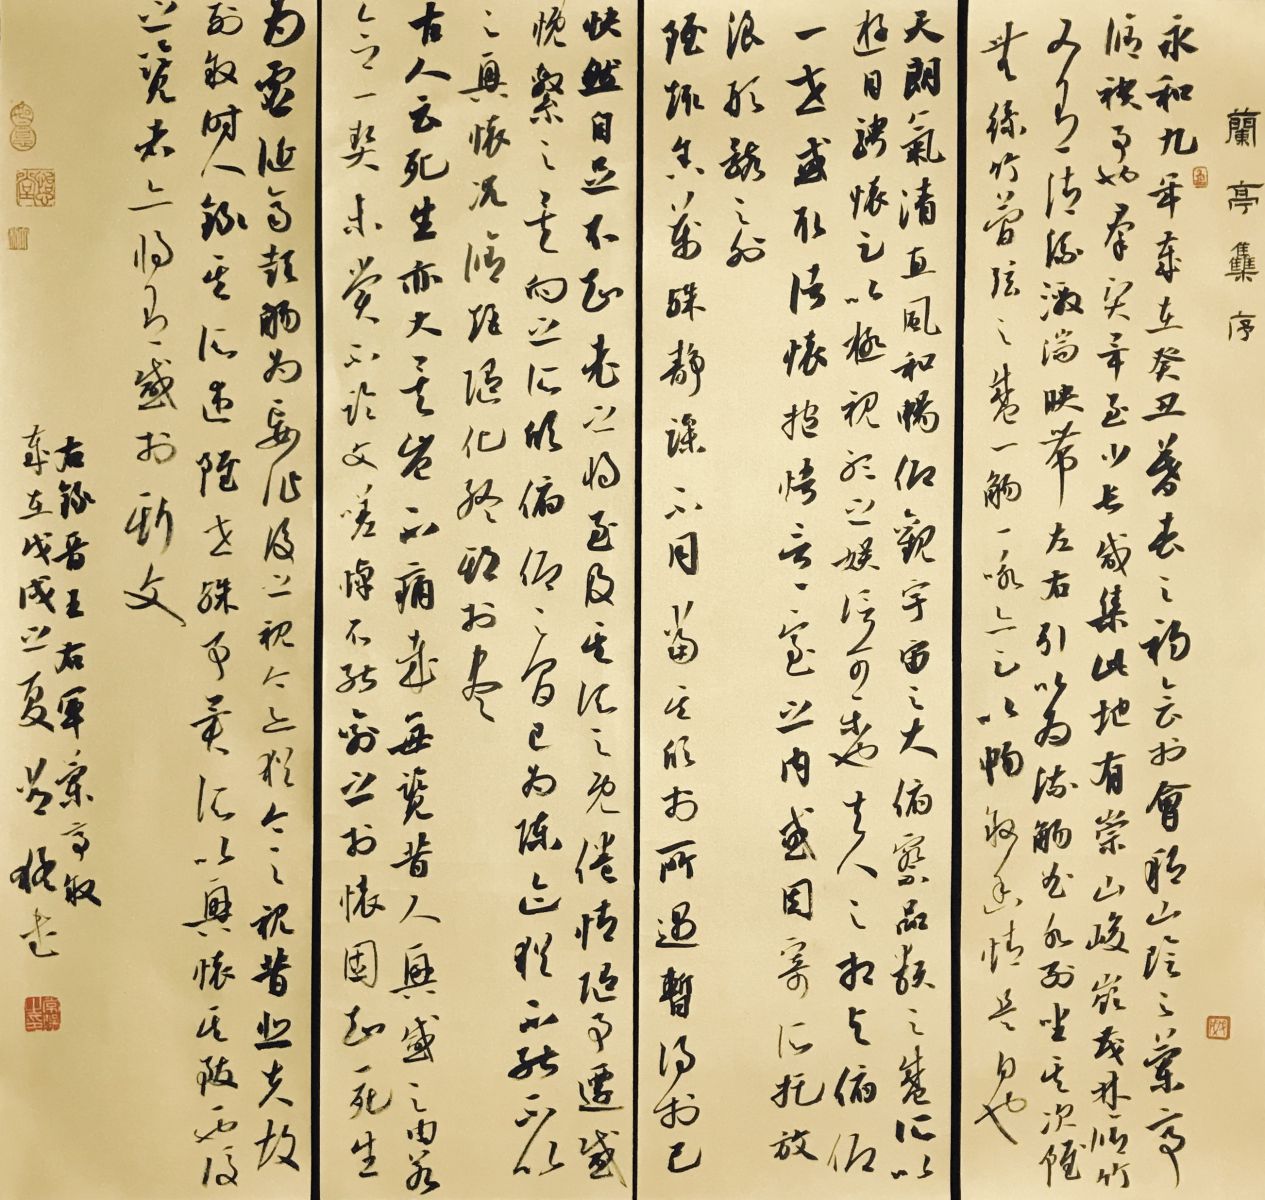 蘭亭集序
永和九年歲在癸丑暮春之初會於會稽山陰之蘭亭
脩禊事也群賢畢至少長咸集此地有崇山峻嶺茂林脩竹
又有清流激湍映帶左右引以為流觴曲水列坐其次雖
無絲竹管弦之盛一觴一詠亦足以暢敘幽情是日也
天朗氣清惠風和暢仰觀宇宙之大俯察品類之盛所以
遊目騁懷足以極視聽之娛信可樂也夫人之相與俯仰
一世或取諸懷抱悟言一室之內或因寄所托放
浪形骸之外
雖趣舍萬殊靜躁不同當其欣於所遇暫得於己
快然自足不知老之將至及其所之既倦情隨事遷感
慨繫之矣向之所欣俯仰之間已為陳迹猶不能不以
之興懷況脩短隨化終期於盡
古人云死生亦大矣豈不痛哉每覽昔人興感之由若
合一契未嘗不臨文嗟悼不能喻之於懷固知一死生
為虛誕齊彭殤為妄作後之視今亦猶今之視昔悲夫故
列敘時人錄其所述雖世殊事異所以興懷其致一也後
之覽者亦將有感於斯文
右錄晉王右軍蘭亭敘
歲在戊戌之夏書